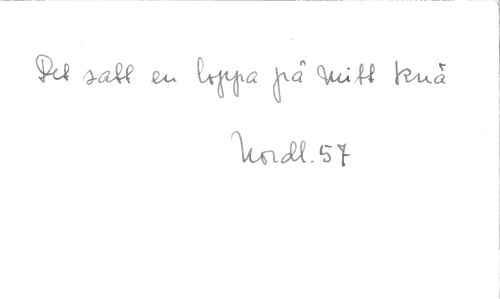 Det satt en loppa på mitt knä
Nordl. 57